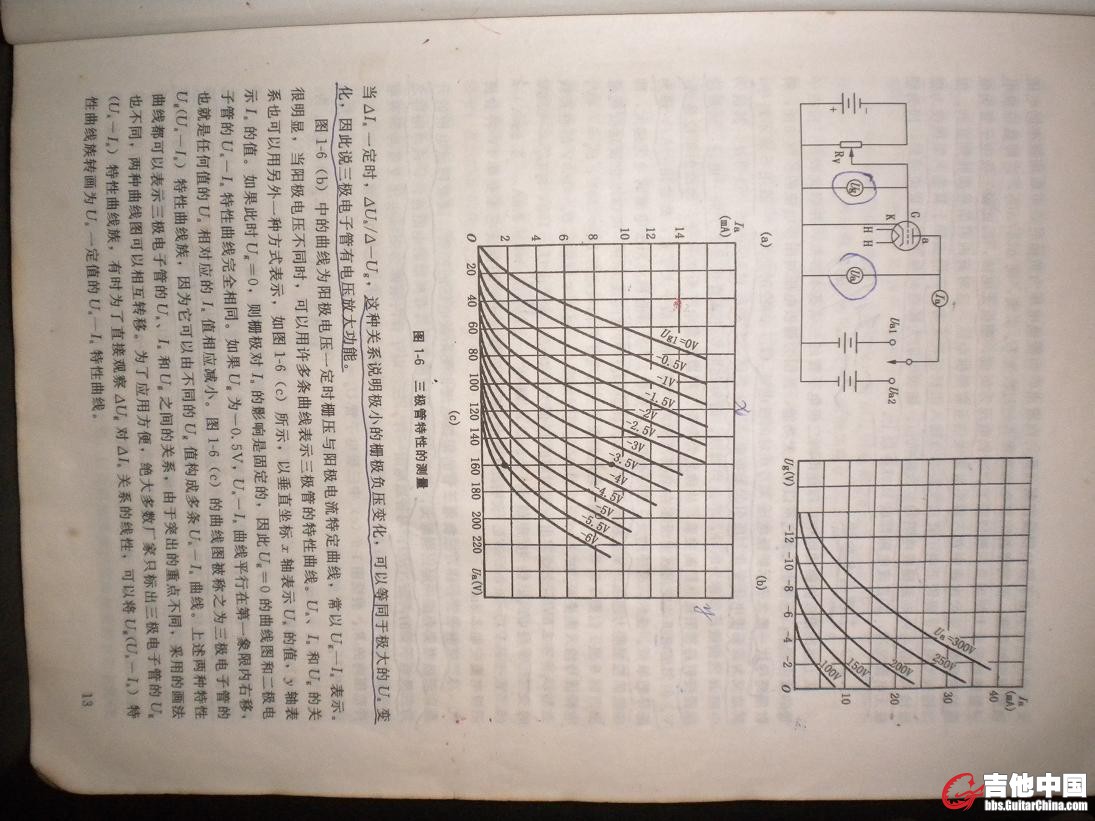 G
a
K
H H
Rv
Ug
Ua
Ia
Ua1
Ua2
(a)
Ia
(mA)
40
30
20
10
0
Ua=300V
250V
200V
150V
100V
Ug(V)
-12
-10
-8
-6
-4
-2
(b)
Ia
(mA)
14
12
10
8
6
4
2
O
20
40
60
80
100
120
140
160
180
200
220
Ua(V)
Ug1=0V
-0.5V
-1V
-1.5V
-2V
-2.5V
-3V
-3.5V
-4V
-4.5V
-5V
-5.5V
-6V
x
y
(c)
图 1-6 三极管特性的测量
当 ΔIa 一定时，ΔUa/Δ-Ug，这种关系说明极小的栅极负压变化，可以等同于极大的 Ua 变
化，因此说三极电子管有电压放大功能。
图 1-6（b）中的曲线为阳极电压一定时栅压与阳极电流特定曲线，常以 Ug-Ia 表示。
很明显，当阳极电压不同时，可以用许多条曲线表示三极管的特性曲线。Ua、Ia 和 Ug 的关
系也可以用另外一种方式表示，如图 1-6（c）所示，以垂直坐标 x 轴表示 Ua 的值，y 轴表
示 Ia 的值。如果此时 Ug=0，则栅极对 Ia 的影响是固定的，因此 Ug=0 的曲线图和二极电
子管的 Ua-Ia 特性曲线完全相同。如果 Ug 为-0.5V，Ua-Ia 曲线平行在第一象限内右移，
也就是任何值的 Ua 相对应的 Ia 值相应减小。图 1-6（c）的曲线图被称之为三极电子管的
Ug(Ua-Ia) 特性曲线族，因为它可以由不同的 Ug 值构成多条 Ua-Ia 曲线。上述两种特性
曲线都可以表示三极电子管的 Ua、Ia 和 Ug 之间的关系，由于突出的重点不同，采用的画法
也不同，两种曲线图可以相互转移。为了应用方便，绝大多数厂家只标出三极电子管的 Ug
(Ua-Ia) 特性曲线族，有时为了直接观察 ΔUg 对 ΔIa 关系的线性，可以将 Ug(Ua-Ia) 特
性曲线族转画为 Ua 一定值的 Ug-Ia 特性曲线。
13
吉他中国
bbs.GuitarChina.com